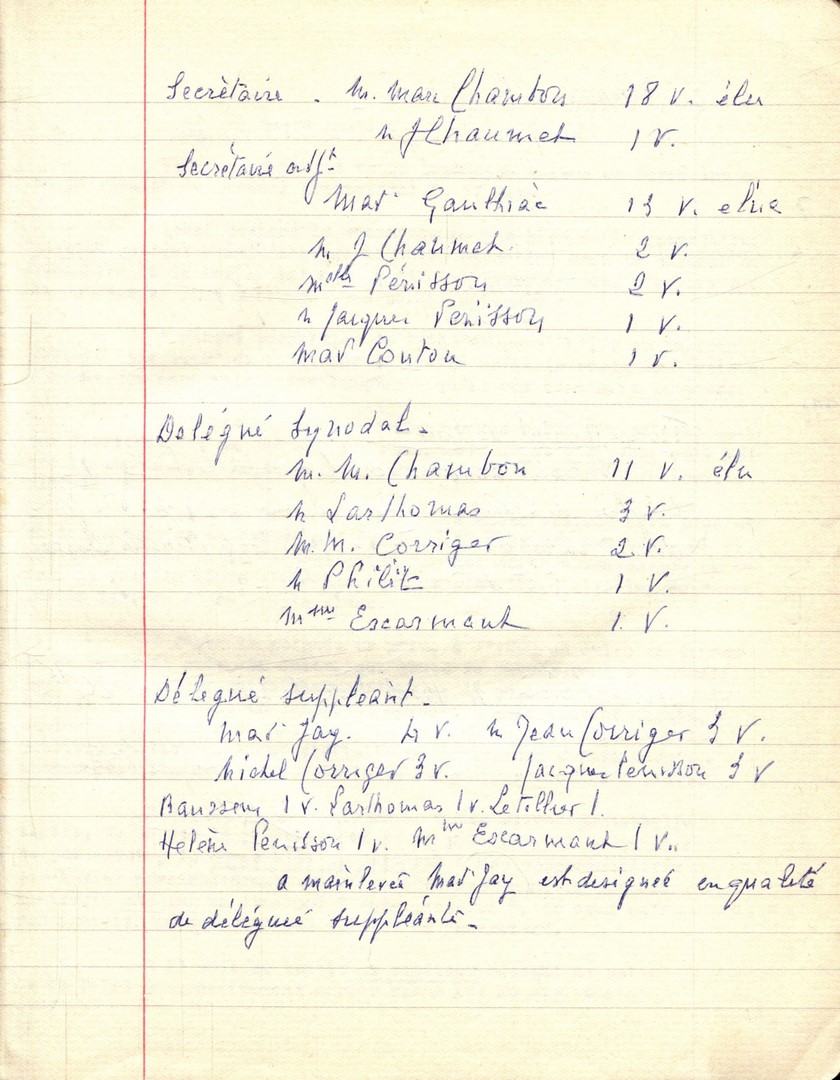 Secrétaire . M. Marc Chambon 18 v. élu
M J Chaumet 1 v.
Secrétaire adjt
Mad. Gauthiac 13 v. elue
M. J Chaumet. 2 v.
Melle Pénisson 2 v.
M Jacques Penisson 1 v.
Mad Conton 1 v.
Délégué Synodal.
M. M. Chambon 11 v. élu
M Larthomas 3 v.
M. M. Corriger 2 v.
M Philit 1 v.
Mme Escarmant 1. v.
Délegué suppleant.
Mad Jay. 4 v. M Jean Corriger 3 v.
Michel Corriger 3 v. Jacques Penisson 3 v
1 v. Larthomas 1 v. Letillier 1.
Helène Penisson 1 v. Mme Escarmant 1 v..
a main levée Mad Jay est designée en qualité
de déléguée suppléante.